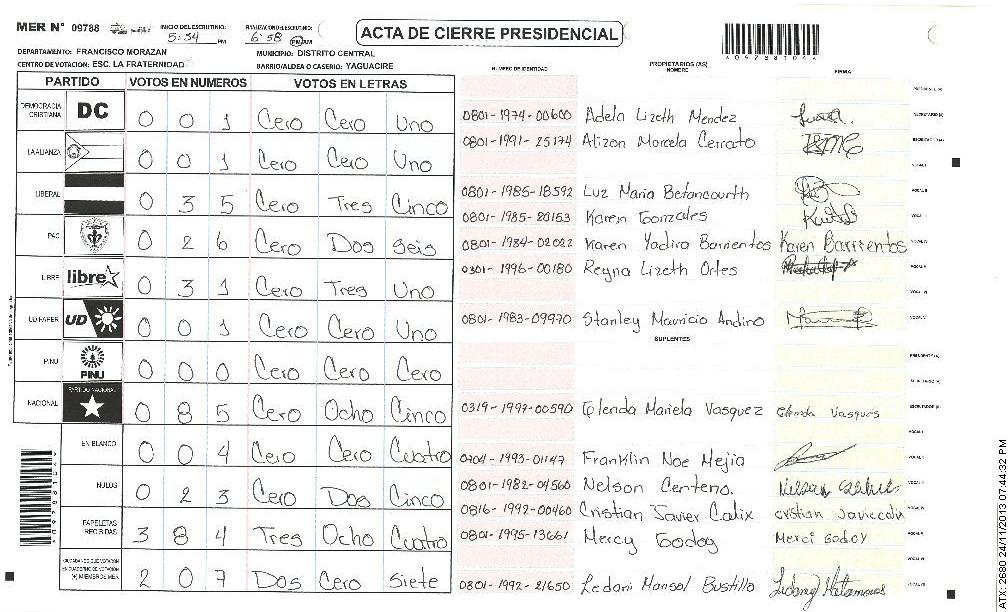 MER N° 09788
INICIO DEL ESCRUTINIO:
5:54 PM
FINALIZACION DEL ESCRUTINIO:
6:58 PM AM
ACTA DE CIERRE PRESIDENCIAL
DEPARTAMENTO: FRANCISCO MORAZAN
MUNICIPIO: DISTRITO CENTRAL
CENTRO DE VOTACION: ESC. LA FRATERNIDAD
BARRIO/ALDEA O CASERIO: YAGUACIRE
PARTIDO VOTOS EN NUMEROS VOTOS EN LETRAS
DEMOCRACIA CRISTIANA DC 0 0 1 Cero Cero Uno
LA ALIANZA 0 0 1 Cero Cero Uno
LIBERAL 0 3 5 Cero Tres Cinco
PAC 0 2 6 Cero Dos Seis
LIBRE libre 0 3 1 Cero Tres Uno
UD-FAPER UD 0 0 1 Cero Cero Uno
PINU PINU 0 0 0 Cero Cero Cero
NACIONAL PARTIDO NACIONAL 0 8 5 Cero Ocho Cinco
EN BLANCO 0 0 4 Cero Cero Cuatro
NULOS 0 2 3 Cero Dos Cinco
PAPELETAS RECIBIDAS 3 8 4 Tres Ocho Cuatro
(+) MIEMBROS MER 2 0 7 Dos Cero Siete
NUMERO DE IDENTIDAD PROPIETARIOS (AS) NOMBRE FIRMA
0801-1974-00600 Adela Lizeth Mendez
0801-1991-25174 Alizon Marcela Cerrato
0801-1985-18592 Luz Maria Betancourth
0801-1985-20153 Karen Gonzales
0801-1984-02022 Karen Yadira Barrientos Karen Barrientos
0301-1996-00180 Reyna Lizeth Ortes
0801-1983-09970 Stanley Mauricio Andino
SUPLENTES
0319-1999-00590 Glenda Mariela Vasquez Glenda Vasques
0704-1993-01147 Franklin Noe Mejia
0801-1982-04560 Nelson Centeno.
0816-1992-00460 Cristian Javier Calix cristian Javier calix
0801-1995-13661 Mercy Godoy Merci Godoy
0801-1992-21650 Ledani Marisol Bustillo
ATX-2580 24/11/2013 07:44:32 PM